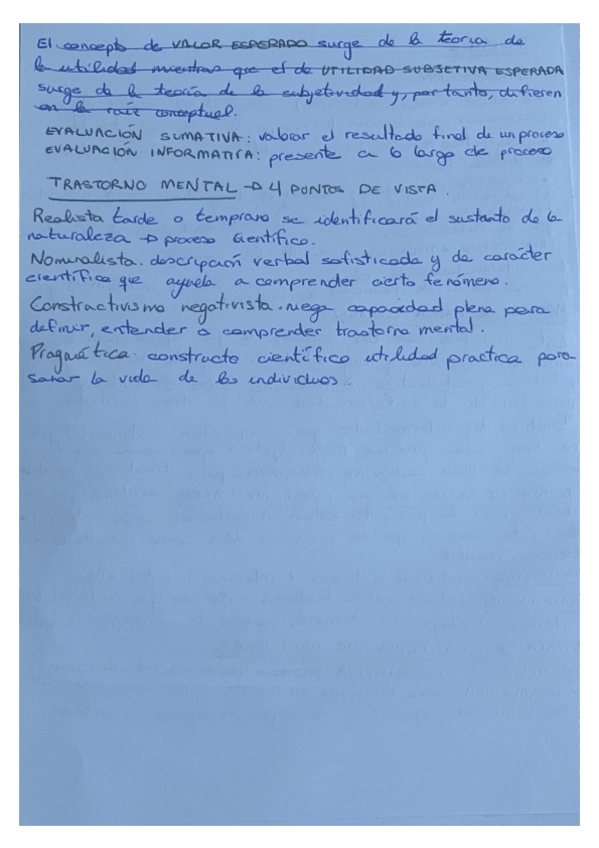 El concepto de VALOR ESPERADO surge de la teoría de
la utilidad mientras que el de UTILIDAD SUBJETIVA ESPERADA
surge de la teoría de la subjetividad y, por tanto, difieren
en la raíz conceptual.
EVALUACIÓN SUMATIVA: valorar el resultado final de un proceso
EVALUACIÓN INFORMATIVA: presente a lo largo de proceso
TRASTORNO MENTAL → 4 PUNTOS DE VISTA.
Realista tarde o temprano se identificará el sustanto de la
naturaleza → proceso científico.
Nominalista. descripción verbal sofisticada y de carácter
científico que ayuda a comprender cierto fenómeno.
Constructivismo negativista. niega capacidad plena para
definir, entender o comprender trastorno mental.
Pragmática. constructo científico utilidad practica para
sanar la vida de los individuos.